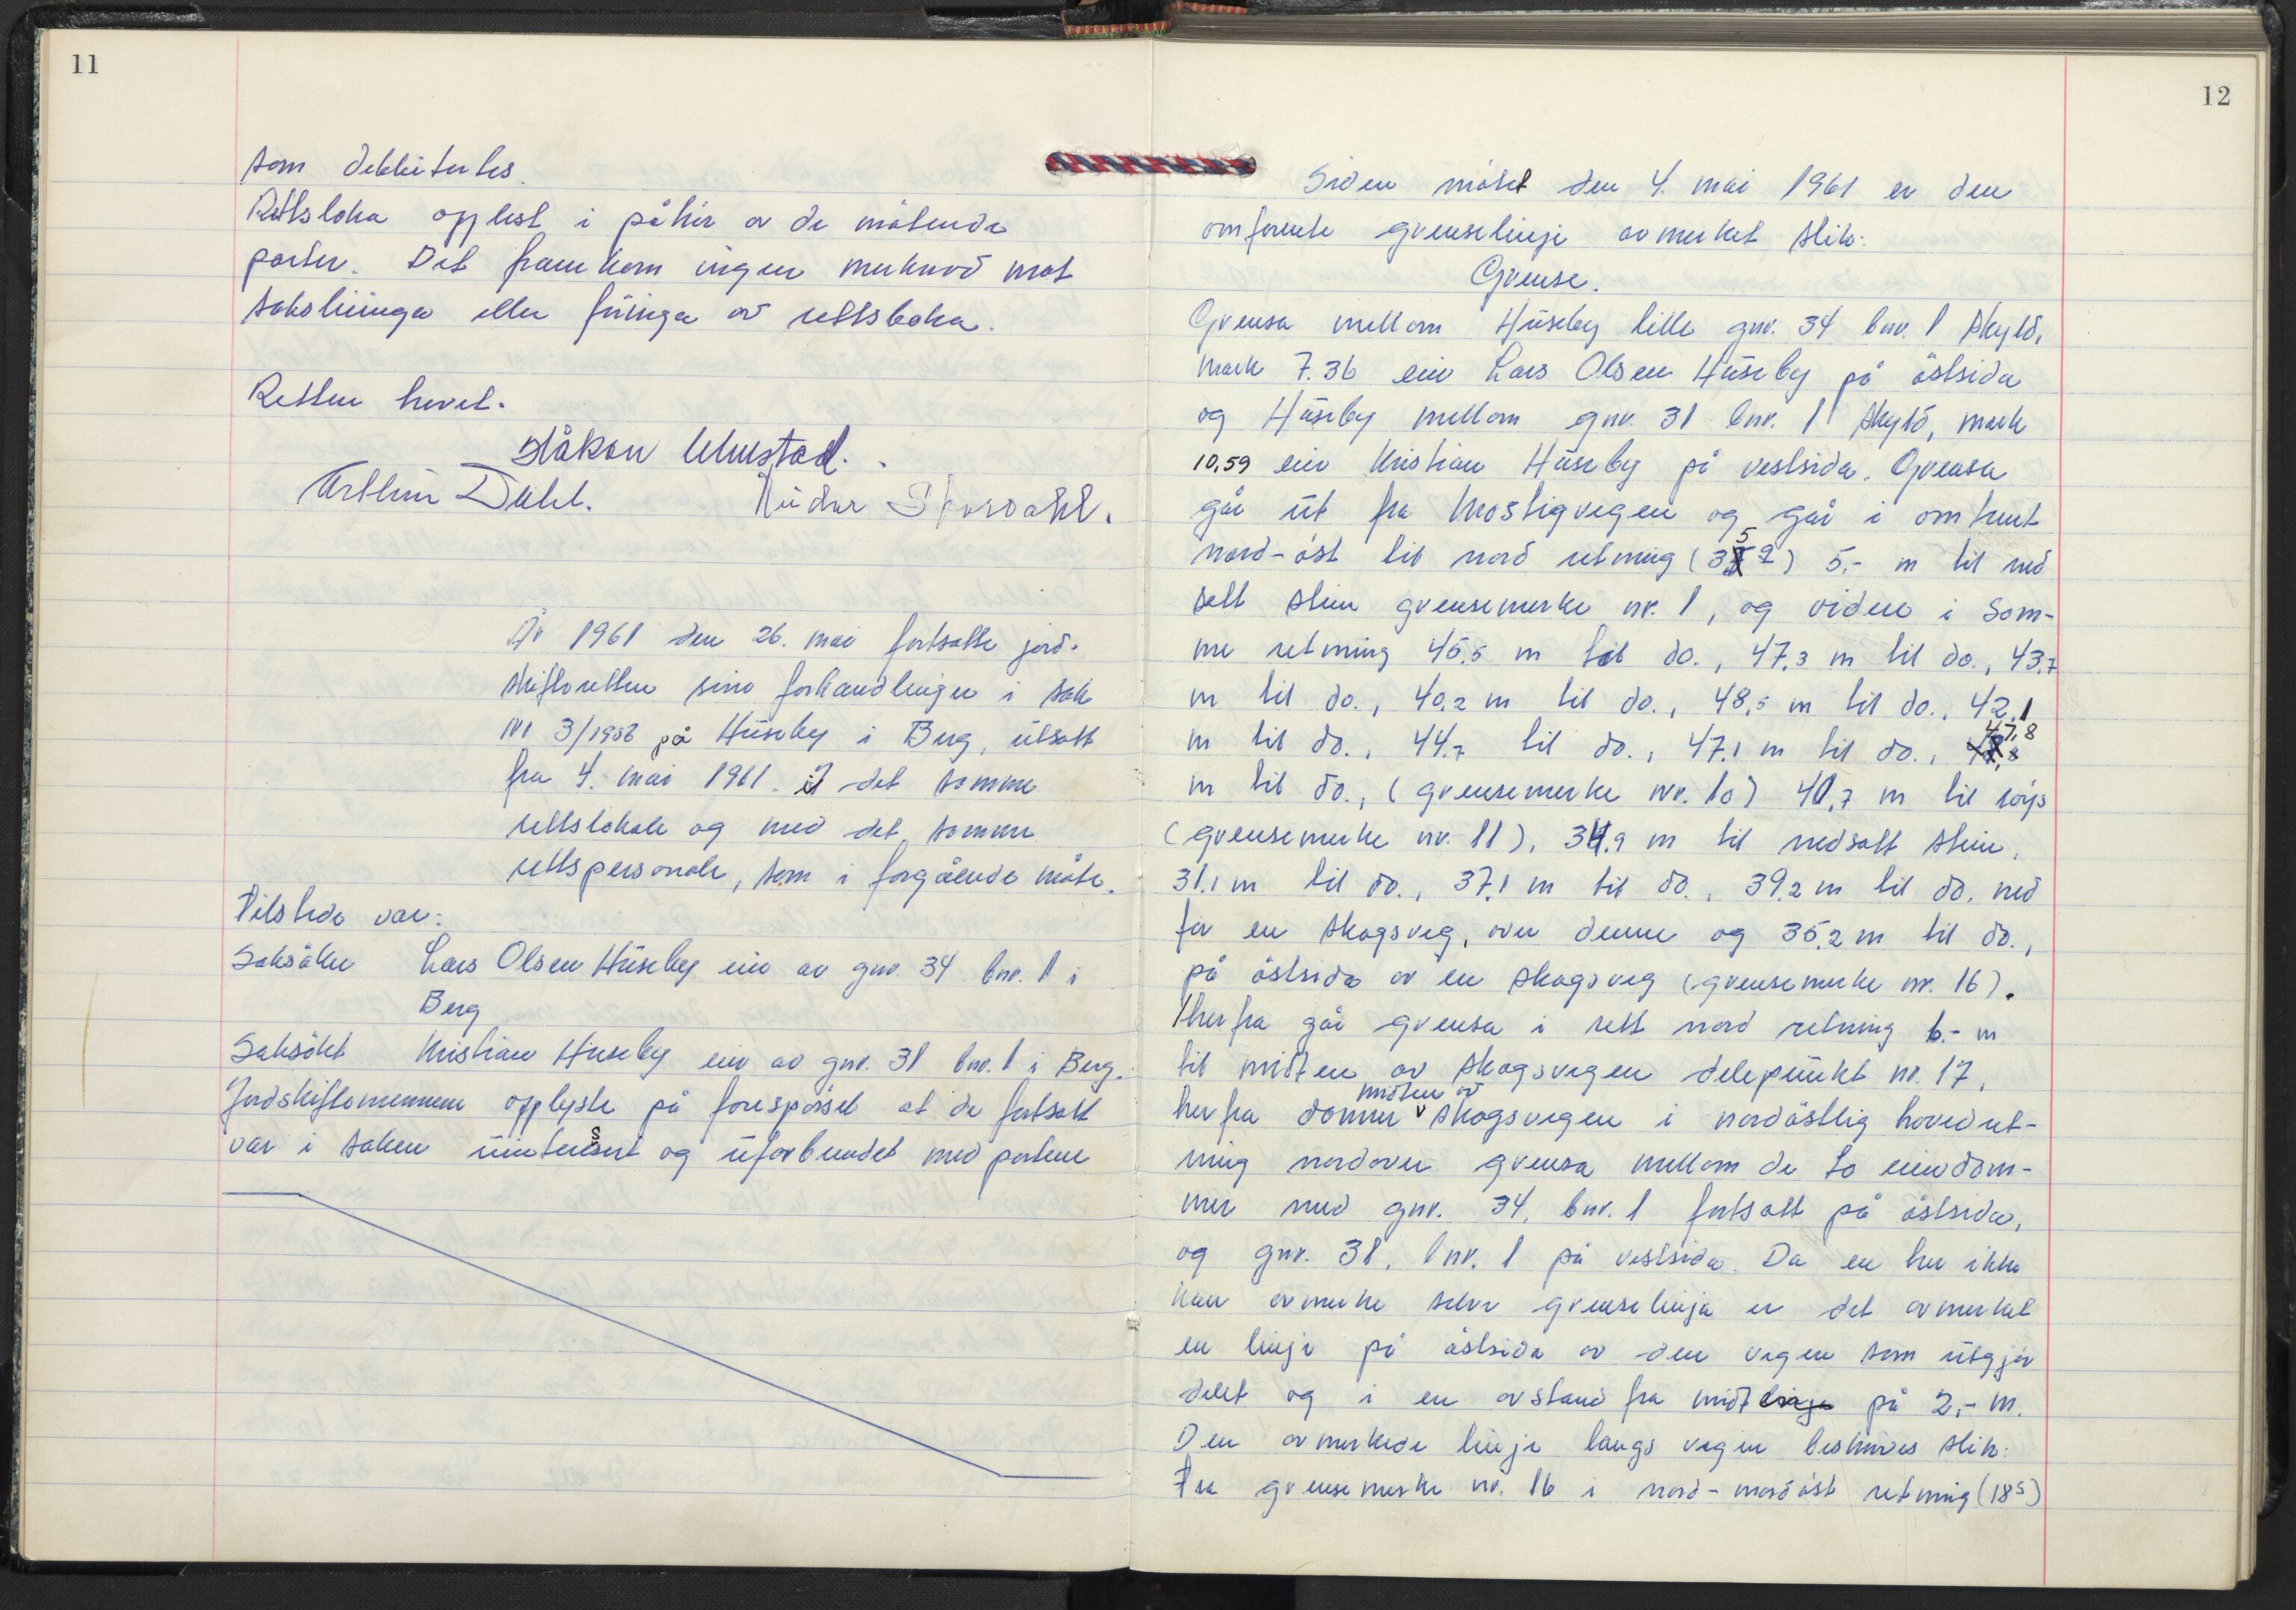 11
som dekkiterkes.
Rettsboka opplest i påhør av de møtende
parter. Det framkom ingen merknad mot
saksliuinga eller føringa av rettsboka.
Retten hevet.
Håkon Ulmustad.
Arthur Dahl. Reidar Stordahl.
År 1961 den 26. mai fortsatte jord-
skifteretten sine forhandlinger i sak
nr 3/1956 på Huseby i Berg, utsatt
fra 4. mai 1961. i det samme
rettslokale og med det samme
rettspersonale, som i forgående møte.
Tilstede var:
Saksøker Lars Olsen Huseby eier av gnr. 34 bnr. 1 i
Berg
Saksøkt Kristian Huseby eier av gnr. 31 bnr. 1 i Berg.
Jordskiftemennene opplyste på forespørsel at de fortsatt
var i saken uinteressert og uforbundet med partene
12
Siden møtet den 4. mai 1961 er den
omforente grenselinje avmerket slik:
Grense.
Grensa mellom Huseby lille gnr. 34 bnr. 1 skyld,
mark 7.36 eier Lars Olsen Huseby på østsida
og Huseby mellom gnr. 31 bnr. 1 skyld, mark
10,59 eier Kristian Huseby på vestsida. Grensa
går ut fra Mostigvegen og går i omtrent
nord-øst til nord retning (35 g) 5,- m til ned
satt stein grensemerke nr. 1, og videre i sam-
me retning 45,5 m til do., 47,3 m til do., 43,7
m til do., 40,2 m til do., 48,5 m til do., 42,1
m til do., 44,7 til do., 47,1 m til do., 47,8
m til do., (grensemerke nr. 10) 40,7 m til røys
(grensemerke nr. 11), 34,9 m til nedsatt stein,
31,1 m til do., 37,1 m til do., 39,2 m til do. ned
for en skogsveg, over denne og 35,2 m til do.,
på østsida av en skogsveg (grensemerke nr. 16).
Herfra går grensa i rett nord retning 6,- m
til midten av skogsvegen delepunkt nr. 17,
herfra danner midten av skogsvegen i nordøstlig hovedret-
ning nordover grensa mellom de to eiendom-
mer med gnr. 34, bnr. 1 fortsatt på østsida,
og gnr. 31, bnr. 1 på vestsida. Da en her ikke
kan avmerke selve grenselinja er det avmerket
en linje på østsida av den vegen som utgjør
delet og i en avstand fra midt linje på 2,- m.
Den avmerkede linje langs vegen beskrives slik:
Fra grensemerke nr. 16 i nord-nordøst retning (18⁵)